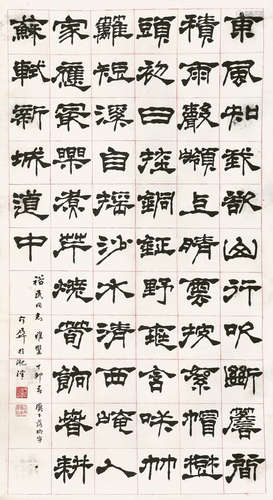 東風知我欲山行吹斷簷間
積雨聲嶺上晴雲披絮帽樹
頭初日挂銅鉦野桃含咲竹
籬短溪自搖沙水清西崦人
家應最樂煮芹燒筍餉春耕
蘇軾新城道中
裕民同志雅鑒丁卯春